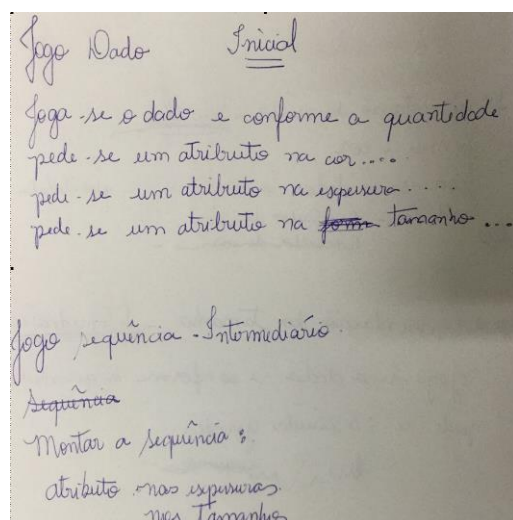 Jogo Dado Inicial
Joga-se o dado e conforme a quantidade
pede-se um atributo na cor....
pede-se um atributo na espessura....
pede-se um atributo na form Tamanho...
Jogo sequência - Intermediário
Sequência
Montar a sequência:
atributo nas espessuras
nos Tamanhos